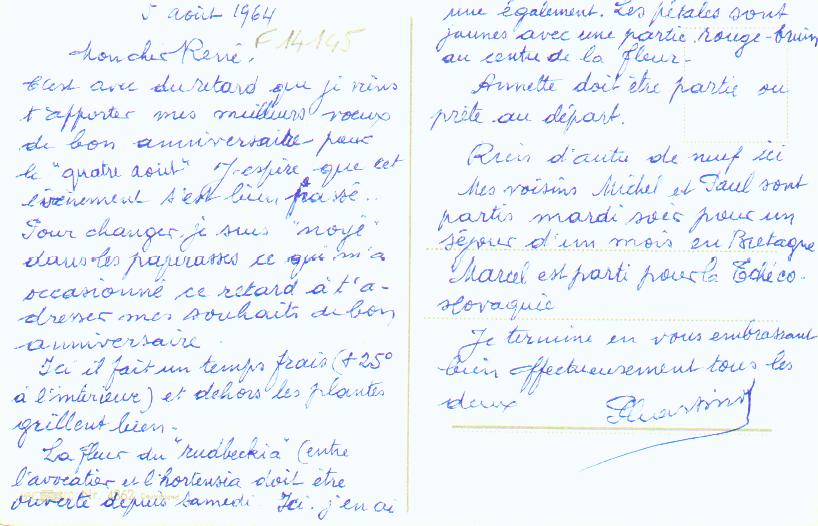 5 août 1964
F 14145
Mon cher René,
C'est avec du retard que je viens
t'apporter mes meilleurs voeux
de bon anniversaire pour
le "quatre août" J'espère que cet
événement s'est bien passé..
Pour changer, je suis "noyé"
dans les paperasses ce qui m'a
occasionné ce retard à t'a-
dresser mes souhaits de bon
anniversaire.
Ici il fait un temps frais (+25°
à l'intérieur) et dehors les plantes
grillent bien.
La fleur du "rudbeckia" (entre
l'avocatier et l'hortensia doit être
ouverte depuis samedi. Ici. j'en ai
une également. Les pétales sont
jaunes avec une partie rouge-brun
au centre de la fleur.
Annette doit être partie ou
prête au départ.
Rien d'autre de neuf ici
Mes voisins Michel et Paul sont
partis mardi soir pour un
séjour d'un mois en Bretagne
Marcel est parti pour la Tchéco-
slovaquie
Je termine en vous embrassant
bien affectueusement tous les
deux